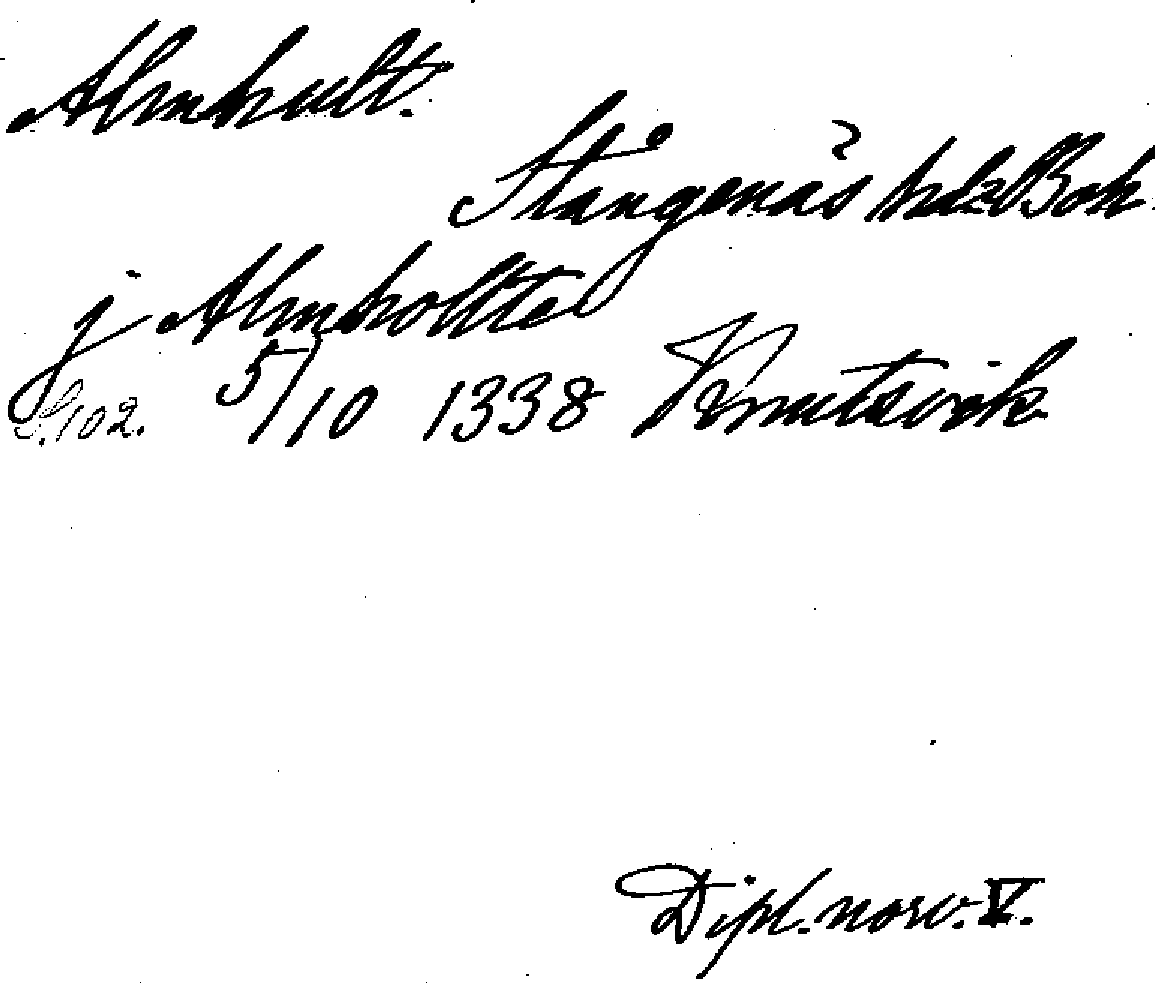 Almhult.
Stångenäs hd Boh.
j Almhollte
S. 102. 5/10 1338 Knutsvik
Dipl. norv. V.